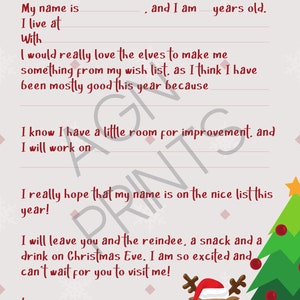 My name is , and I am years old.
I live at
With
I would really love the elves to make me
something from my wish list, as I think I have
been mostly good this year because
I know I have a little room for improvement, and
I will work on
I really hope that my name is on the nice list this
year!
I will leave you and the reindee, a snack and a
drink on Christmas Eve. I am so excited and
can't wait for you to visit me!
AGN
PRINTS